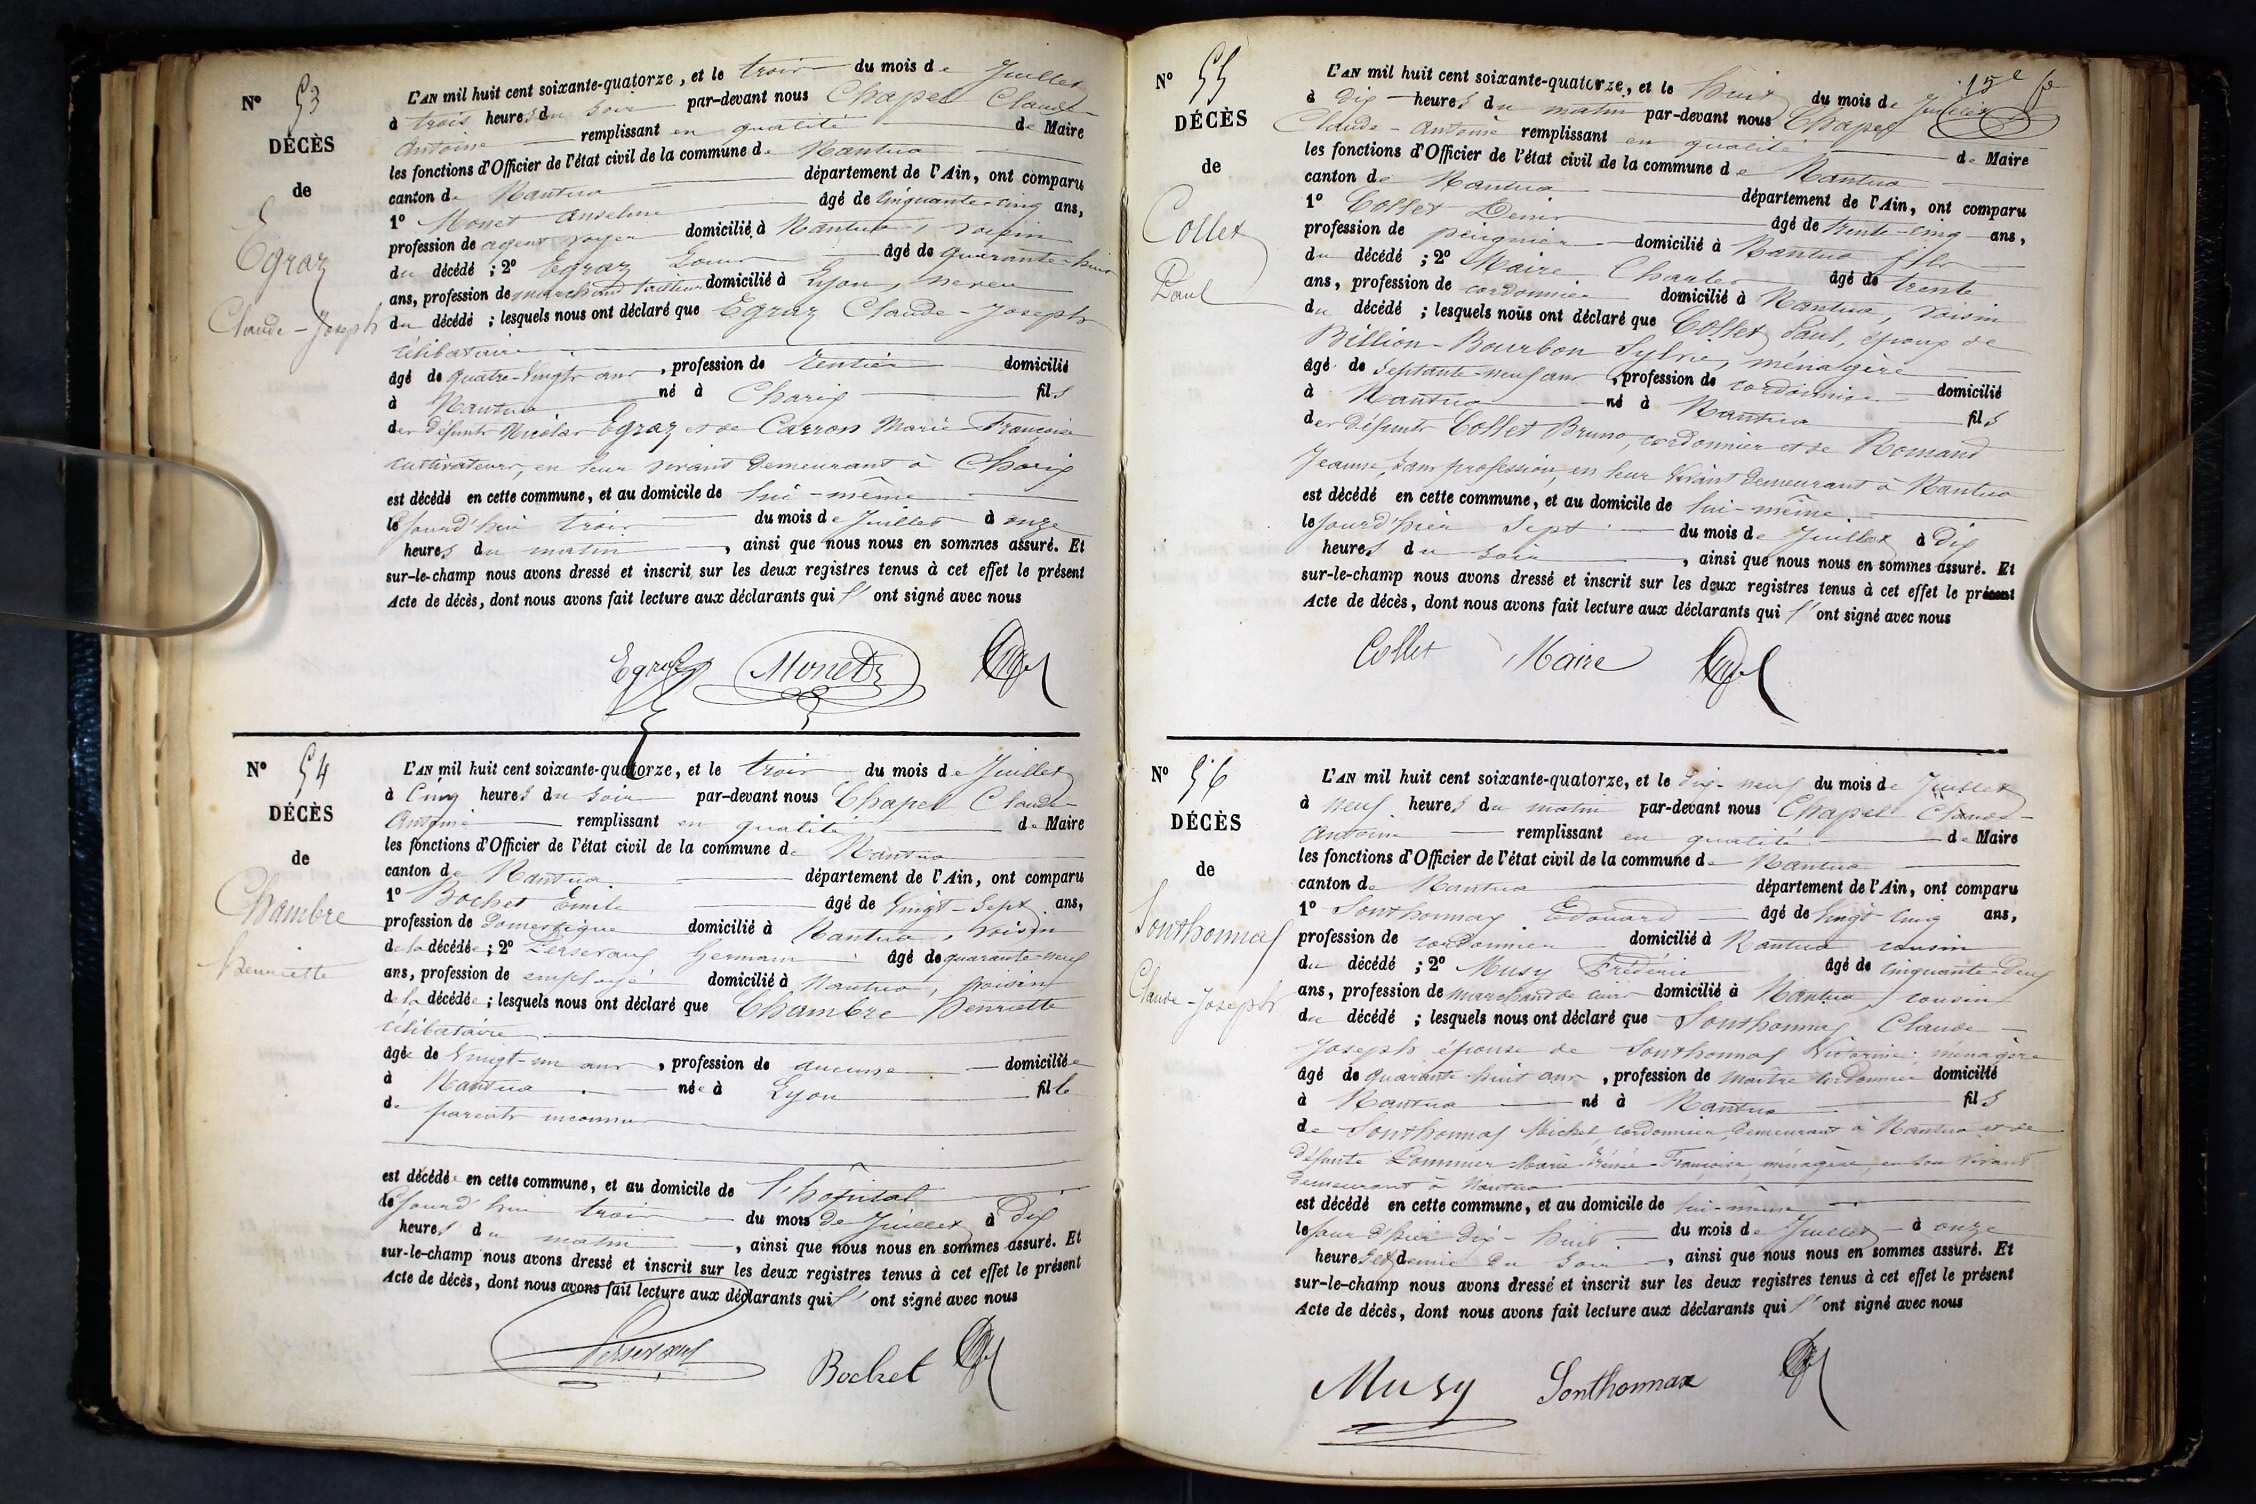 N° 53
DÉCÈS
de
Egraz
Claude-Joseph
L'AN mil huit cent soixante-quatorze, et le trois du mois de Juillet
à trois heures du soir par-devant nous Chapel Claude
Antoine remplissant en qualité de Maire
les fonctions d'Officier de l'état civil de la commune de Nantua
canton de Nantua département de l'Ain, ont comparu
1° Monet Anselme âgé de Cinquante-cinq ans,
profession de agent voyer domicilié à Nantua, voisin
du décédé ; 2° Egraz Louis âgé de quarante-huit
ans, profession de marchand tailleur domicilié à Lyon, neveu
du décédé ; lesquels nous ont déclaré que Egraz Claude-Joseph
célibataire
âgé de quatre-vingts ans, profession de rentier domicilié
à Nantua né à Charix fils
des défunts Nicolas Egraz et de Carron Marie Françoise
cultivateurs, en leur vivant demeurant à Charix
est décédé en cette commune, et au domicile de lui-même
le jourd'hui trois du mois de Juillet à onze
heures du matin, ainsi que nous nous en sommes assuré. Et
sur-le-champ nous avons dressé et inscrit sur les deux registres tenus à cet effet le présent
Acte de décès, dont nous avons fait lecture aux déclarants qui l' ont signé avec nous
Egraz Monet
N° 54
DÉCÈS
de
Chambre
Henriette
L'AN mil huit cent soixante-quatorze, et le trois du mois de Juillet
à Cinq heures du soir par-devant nous Chapel Claude
Antoine remplissant en qualité de Maire
les fonctions d'Officier de l'état civil de la commune de Nantua
canton de Nantua département de l'Ain, ont comparu
1° Bochet Emile âgé de Vingt-Sept ans,
profession de Domestique domicilié à Nantua, voisin
de la décédée ; 2° Germain âgé de quarante-neuf
ans, profession de employé domicilié à Nantua, voisin
de la décédée ; lesquels nous ont déclaré que Chambre Henriette
célibataire
âgée de Vingt-un ans, profession de aucune domiciliée
à Nantua née à Lyon fille
de parents inconnus
est décédée en cette commune, et au domicile de l'hôpital
le jourd'hui trois du mois de Juillet à Dix
heures du matin, ainsi que nous nous en sommes assuré. Et
sur-le-champ nous avons dressé et inscrit sur les deux registres tenus à cet effet le présent
Acte de décès, dont nous avons fait lecture aux déclarants qui l' ont signé avec nous
Bochet
15e f°
N° 55
DÉCÈS
de
Collet
Paul
L'AN mil huit cent soixante-quatorze, et le huit du mois de Juillet
à Dix heures du matin par-devant nous Chapel
Claude-Antoine remplissant en qualité de Maire
les fonctions d'Officier de l'état civil de la commune de Nantua
canton de Nantua département de l'Ain, ont comparu
1° Collet Denis âgé de trente-cinq ans,
profession de peignier domicilié à Nantua fils
du décédé ; 2° Maire Charles âgé de trente
ans, profession de cordonnier domicilié à Nantua, voisin
du décédé ; lesquels nous ont déclaré que Collet Paul, époux de
Billion-Bourbon Sylvie, ménagère
âgé de Septante-neuf ans, profession de cordonnier domicilié
à Nantua né à Nantua fils
des défunts Collet Bruno, cordonnier et de Romand
Jeanne, sans profession, en leur vivant demeurant à Nantua
est décédé en cette commune, et au domicile de lui-même
le jourd'hier Sept du mois de Juillet à Dix
heures du soir, ainsi que nous nous en sommes assuré. Et
sur-le-champ nous avons dressé et inscrit sur les deux registres tenus à cet effet le présent
Acte de décès, dont nous avons fait lecture aux déclarants qui l' ont signé avec nous
Collet Maire
N° 56
DÉCÈS
de
Sonthonnax
Claude-Joseph
L'AN mil huit cent soixante-quatorze, et le dix-neuf du mois de Juillet
à neuf heures du matin par-devant nous Chapel Claude-
Antoine remplissant en qualité de Maire
les fonctions d'Officier de l'état civil de la commune de Nantua
canton de Nantua département de l'Ain, ont comparu
1° Sonthonnax Edouard âgé de Vingt cinq ans,
profession de cordonnier domicilié à Nantua cousin
du décédé ; 2° Musy Frédéric âgé de Cinquante-Deux
ans, profession de marchand de cuirs domicilié à Nantua, cousin
du décédé ; lesquels nous ont déclaré que Sonthonnax Claude-
Joseph épouse de Sonthonnax Victorine ménagère
âgé de quarante-huit ans, profession de maître cordonnier domicilié
à Nantua né à Nantua fils
de Sonthonnax Michel, cordonnier, demeurant à Nantua et de
défunte Pommier Marie Françoise, ménagère, en son vivant
demeurant à Nantua
est décédé en cette commune, et au domicile de lui-même
le jour d'hier Dix-huit du mois de Juillet à onze
heures et demie du soir, ainsi que nous nous en sommes assuré. Et
sur-le-champ nous avons dressé et inscrit sur les deux registres tenus à cet effet le présent
Acte de décès, dont nous avons fait lecture aux déclarants qui l' ont signé avec nous
Musy Sonthonnax